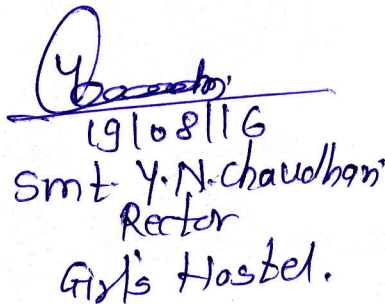 19/08/16
Smt. Y.N. Chaudhari
Rector
Girl's Hostel.